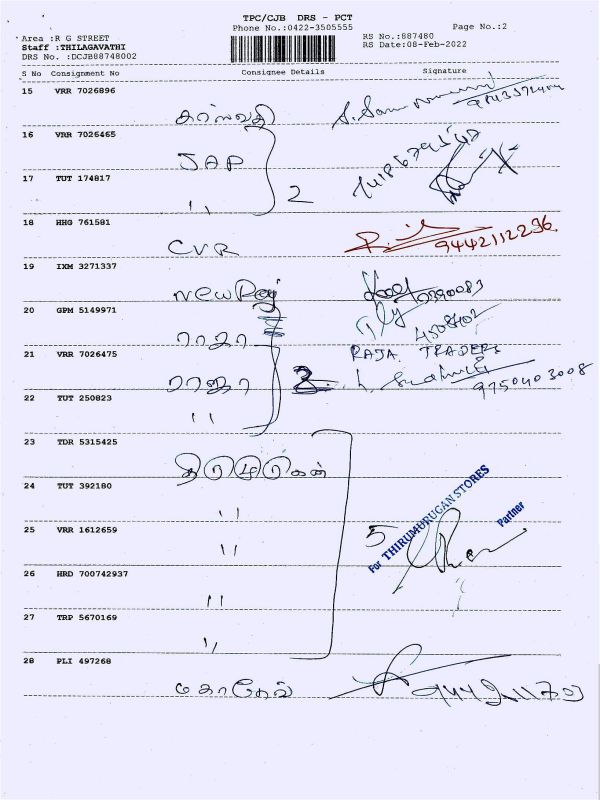 TPC/CJB DRS - PCT
Phone No.:0422-3505555
Page No.:2
Area :R G STREET
Staff :THILAGAVATHI
DRS No. :DCJB88748002
RS No.:887480
RS Date:08-Feb-2022
S No Consignment No Consignee Details Signature
15 VRR 7026896
16 VRR 7026465
JAP
17 TUT 174817
,, 2
18 HHG 761581
CVR 9442112236
19 IXM 3271337
20 GPM 5149971
ராஜா
21 VRR 7026475
RAJA TRADERS
ராஜா
9750403008
22 TUT 250823
,,
23 TDR 5315425
24 TUT 392180
,,
25 VRR 1612659
,,
5
For THIRUMURUGAN STORES
Partner
26 HRD 700742937
,,
27 TRP 5670169
,,
28 PLI 497268